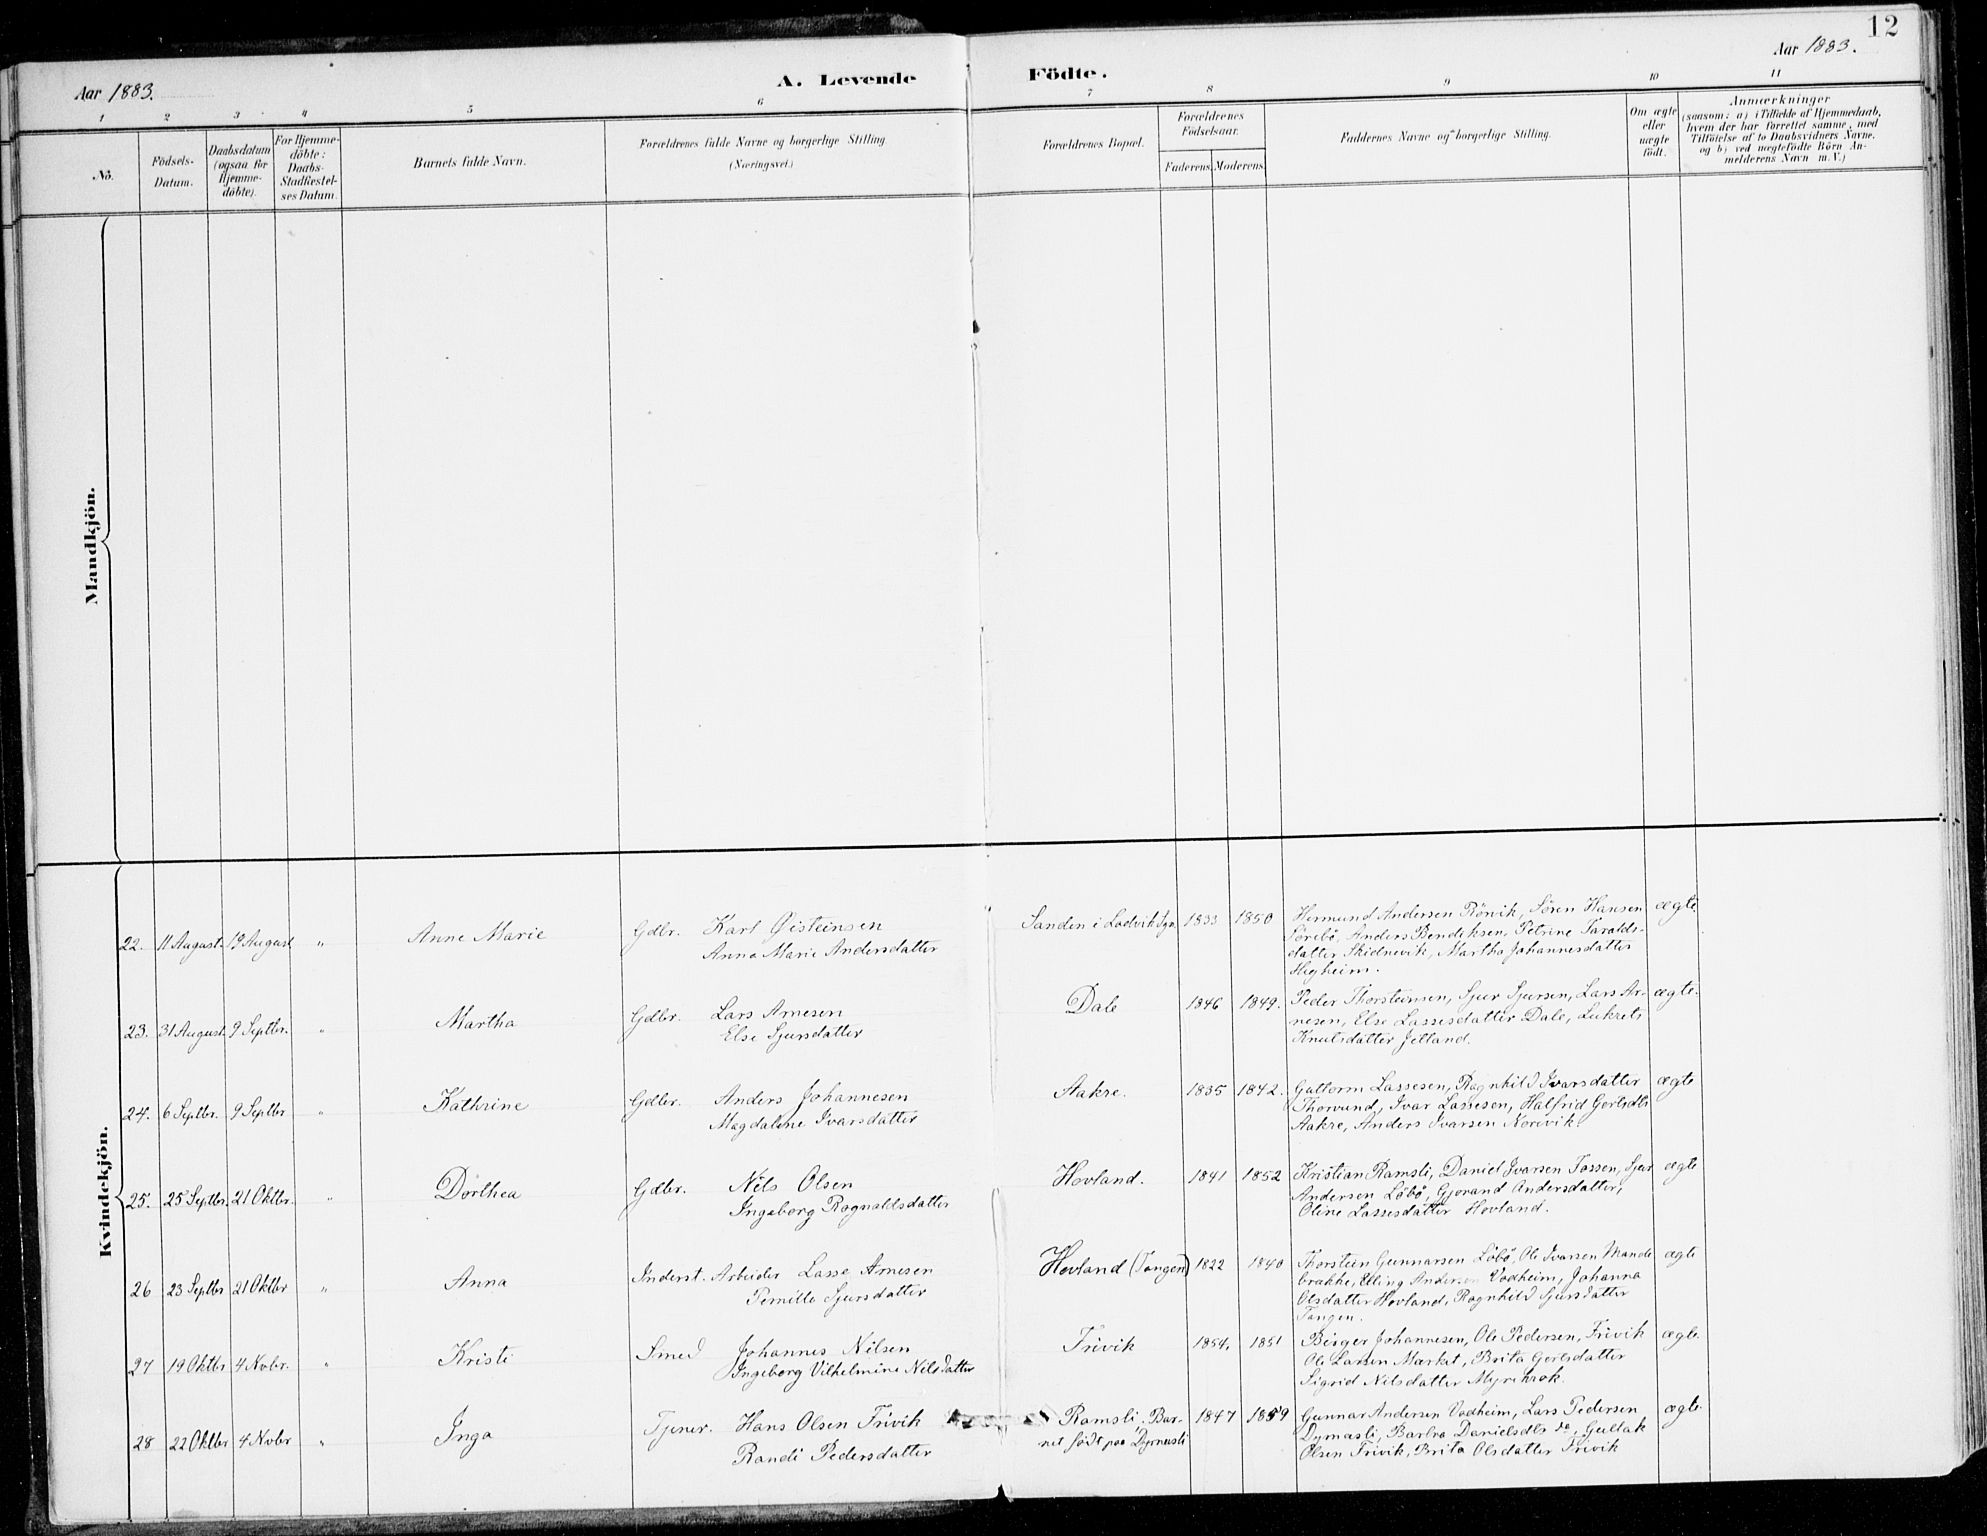 12
Aar 1883.
A. Levende Födte.
Aar 1883.
1 2 3 4 5 6 7 8 9 10 11
No.
Födsels-
Datum.
Daabsdatum
(ogsaa for
Hjemme-
döbte).
For Hjemme-
döbte:
Daabs-
Stadfæstel-
ses Datum.
Barnets fulde Navn.
Forældrenes fulde Navne og borgerlige Stilling
(Næringsvei.)
Forældrenes Bopæl.
Forældrenes
Födselsaar.
Faderens. Moderens.
Faddernes Navne og borgerlige Stilling.
Om ægte
eller
uægte
födt.
Anmærkninger
(saasom: a) i Tilfælde af Hjemmedaab,
hvem der har forrettet samme, med
Tilföielse af to Daabsvidners Navne,
og b) ved uægtefödte Börn An-
melderens Navn m. V.)
Mandkjön.
Kvindekjön.
22. 11 August 19 August " Anne Marie Gdbr. Karl Øisteinsen
Anna Marie Andersdatter
Sanden i Ladvik Sgn 1833 1850
Hermund Andersen Rörvik, Sören Hansen
Sörebö, Anders Bendiksen, Petrine Taralds-
datter Skidnevik, Martha Johannesdatter
Høgheim.
ægte
23. 31 August 9 Septbr. " Martha Gdbr. Lars Arnesen
Else Sjursdatter
Dale 1846 1849.
Peder Thorsteinsen, Sjur Sjursen, Lars Ar-
nesen, Else Lassesdatter Dale, Lukrets
Knutsdatter Jetland.
ægte.
24. 6 Septbr. 9 Septbr " Kathrine Gdbr. Anders Johannesen
Magdalene Ivarsdatter
Aakre. 1835 1842.
Guttorm Lassesen, Ragnhild Ivarsdatter
Thorvund, Ivar Lassesen, Halfrid Gertsdtr
Aakre, Anders Ivarsen Norevik.
ægte
25. 25 Septbr. 21 Oktbr. " Dorthea Gdbr. Nils Olsen
Ingeborg Ragnaldsdatter
Hovland. 1841 1852
Kristian Ramsli, Daniel Ivarsen Tossen, Sjur
Andersen Löbö, Gjorand Andersdatter,
Oline Lassesdatter Hovland.
ægte
26 23 Septbr 21 Oktbr " Anna Inderst. Arbeider Lasse Arnesen
Pernille Sjursdatter
Hovland (Tangen) 1822 1840
Thorstein Gunnarsen Löbö, Ole Ivarsen Mande
brakke, Elling Andersen Vadheim, Johanna
Olsdatter Hovland, Ragnhild Sjursdatter
Tangen.
ægte
27 19 Oktbr 4 Novbr. " Kristi Smed Johannes Nilsen
Ingeborg Vilhelmine Nilsdatter
Trivik 1854. 1851
Birger Johannesen, Ole Pedersen, Trivik
Ole Larsen Mærkat, Brita Gertsdatter
Sigrid Nilsdatter Myrekrok.
ægte.
28 22 Oktbr 4 Novbr " Inga Tjener. Hans Olsen Trivik
Randi Pedersdatter
Ramsli. Bar-
net födt paa Dyrnesli
1847 1859
Gunnar Andersen Vadheim, Lars Pedersen
Dyrnasli, Barbra Danielsdtr do, Gultak
Olsen Trivik, Brita Olsdatter Trivik
ægte